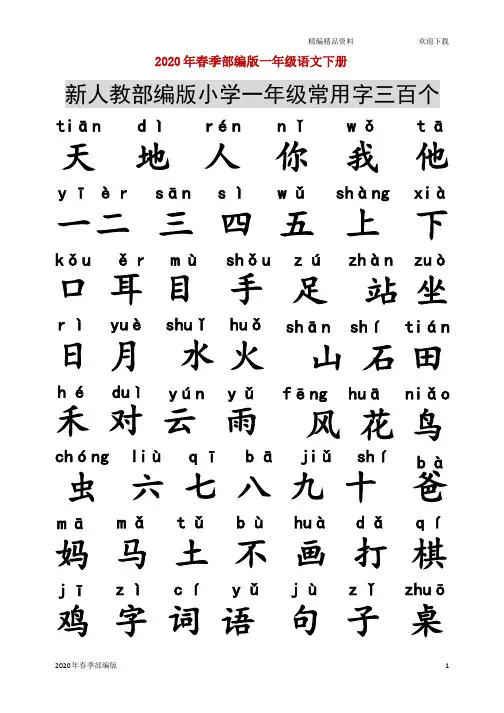 精编精品资料 欢迎下载
2020年春季部编版一年级语文下册
新人教部编版小学一年级常用字三百个
tiān dì rén nǐ wǒ tā
天 地 人 你 我 他
yī èr sān sì wǔ shàng xià
一 二 三 四 五 上 下
kǒu ěr mù shǒu zú zhàn zuò
口 耳 目 手 足 站 坐
rì yuè shuǐ huǒ shān shí tián
日 月 水 火 山 石 田
hé duì yún yǔ fēng huā niǎo
禾 对 云 雨 风 花 鸟
chóng liù qī bā jiǔ shí bà
虫 六 七 八 九 十 爸
mā mǎ tǔ bù huà dǎ qí
妈 马 土 不 画 打 棋
jī zì cí yǔ jù zǐ zhuō
鸡 字 词 语 句 子 桌
2020年春季部编版 1